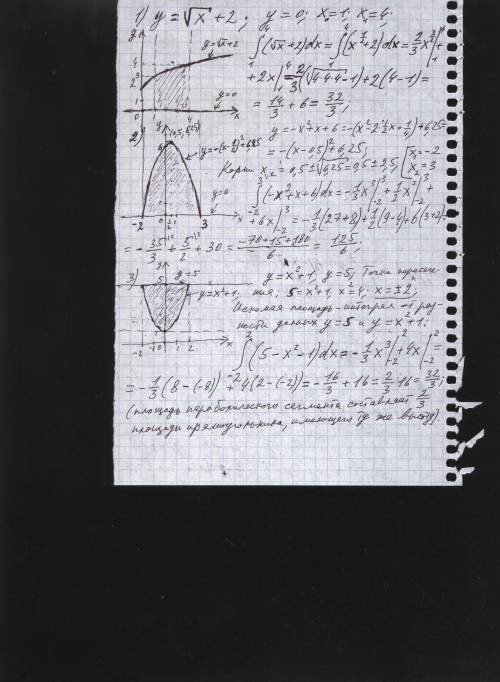 1) y = √x + 2; y = 0; x₁ = 1; x₂ = 4;
y
y = √x + 2
∫₁⁴ (√x + 2) dx = ∫₁⁴ (x^½ + 2) dx = 2/3 x^(3/2) |₁⁴ +
4
3
2
1
y = 0
0 1 4 x
+ 2x |₁⁴ = 2/3 (√(4·4·4) − 1) + 2(4 − 1) =
= 14/3 + 6 = 32/3;
2)
y
(0,5; 6,25)
6
y = −(x − ½)² + 6,25
y = 0
−2 0 1 2 3 x
y = −x² + x + 6 = −(x² − 2·½x + ¼) + 6,25 =
= −(x − 0,5)² + 6,25;
Корни x₁,₂ = 0,5 ± √6,25 = 0,5 ± 2,5; [x₁ = −2 x₂ = 3
∫₋₂³ (−x² + x + 6) dx = −1/3 x³ |₋₂³ + 1/2 x² |₋₂³ +
+ 6x |₋₂³ = −1/3 (27 + 8) + 1/2 (9 − 4) + 6(3 + 2) =
= −35/3 + 5/2 + 30 = (−70 + 15 + 180)/6 = 125/6;
3)
y
5 y = 5
y = x² + 1
−2 0 2 x
y = x² + 1; y = 5; Точки пересече-
ния: 5 = x² + 1, x² = 4; x = ±2;
Искомая площадь – интеграл от раз-
ности данных y = 5 и y = x² + 1;
∫₋₂² (5 − x² − 1) dx = −1/3 x³ |₋₂² + 4x |₋₂² =
= −1/3 (8 − (−8)) + 4(2 − (−2)) = −16/3 + 16 = 2/3 · 16 = 32/3;
(площадь параболического сегмента составляет 2/3
площади прямоугольника, имеющего ту же высоту).